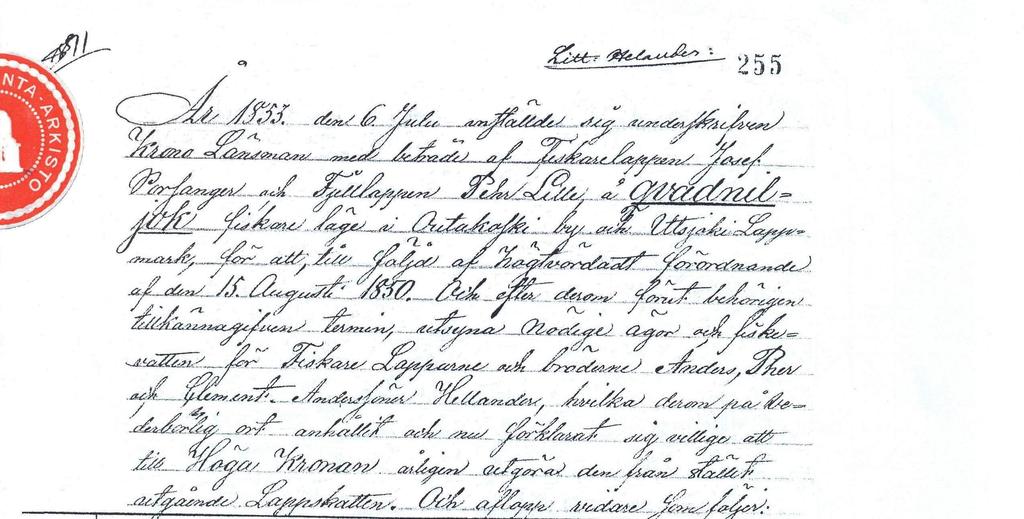 Litt. Helander: 255
NTA-ARKISTO
År 1853. den 6. Julii inställde sig underskrifven
Krono Länsman med biträde af Fiskarelappen Josef
Porsanger och Fjelllappen Pehr Lille, å gvadnil=
jok fiskare läge i Outakoski by och Utsjoki Lapp=
mark, för att, till följd af Högtvördadt förordnande
af den 15. Augusti 1850. Och efter derom förut behörigen
tillkännagifven termin, utsyna Nödige ägor och fiske=
vatten för Fiskare Lapparne och bröderne Anders, Pher
och Clement. Andersöner Hellander, hvilka derom på ve=
derbörlig ort anhållit och nu förklarat sig villige att
till Höga Kronan årligen utgöra den från stället
utgående Lappskatten. Och aflopp vidare som följer: